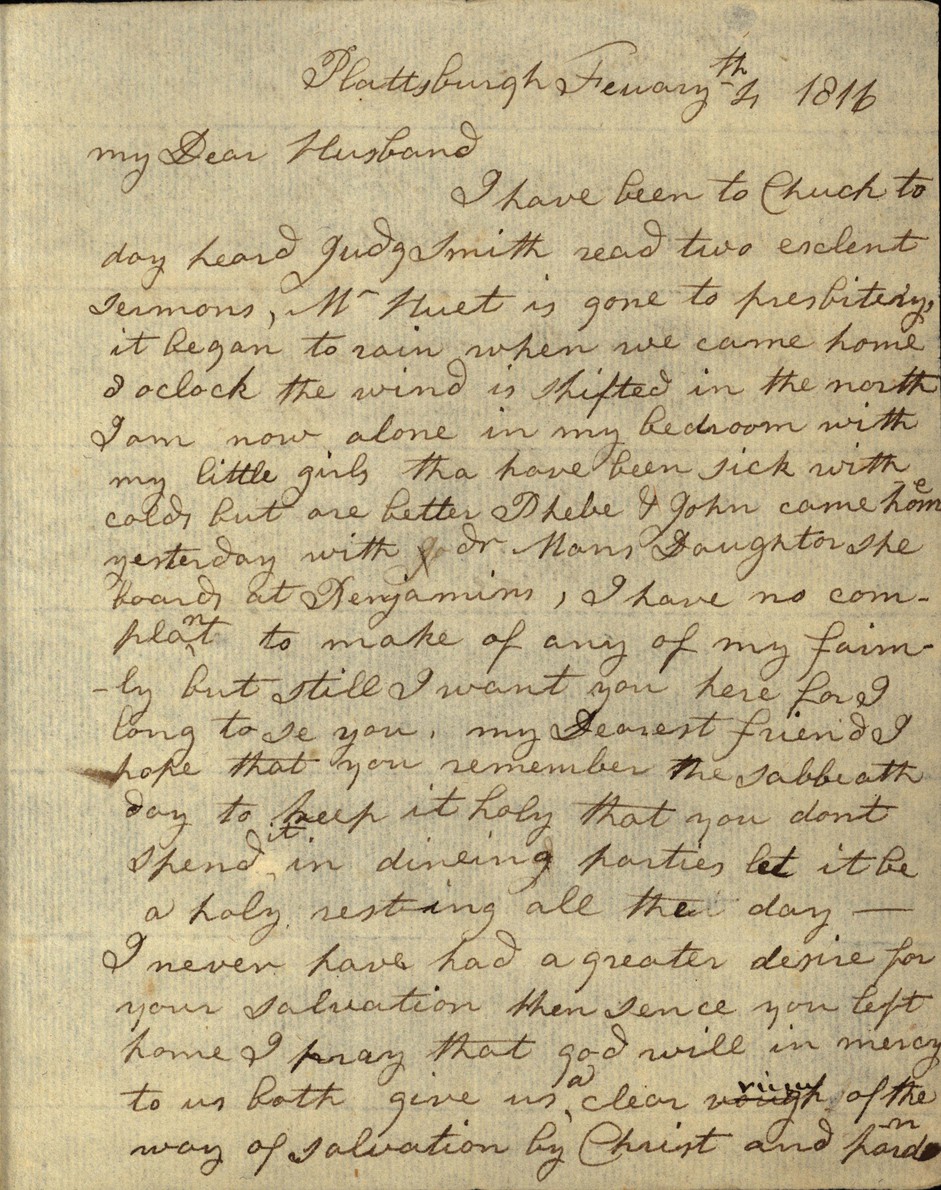 Plattsburgh Feuary th 4 1816
my Dear Husband
I have been to Chuch to
day heard Judg Smith read two exclent
sermons, Mr Huet is gone to presbitery,
it began to rain when we came home
8 oclock the wind is shifted in the north
I am now alone in my bedroom with
my little girls tha have been sick with
colds but are better Phebe & John came home
yesterday with dr Mans Daughtor she
boards at Benjamins, I have no com-
plant to make of any of my faim-
-ly but still I want you here for I
long to se you, my Dearest friend I
hope that you remember the sabbeath
day to keep it holy that you dont
spend it in dineing parties let it be
a holy resting all the day —
I never have had a greater desire for
your salvation then sence you left
home I pray that god will in mercy
to us both give us a clear view of the
way of salvation by Christ and pardn